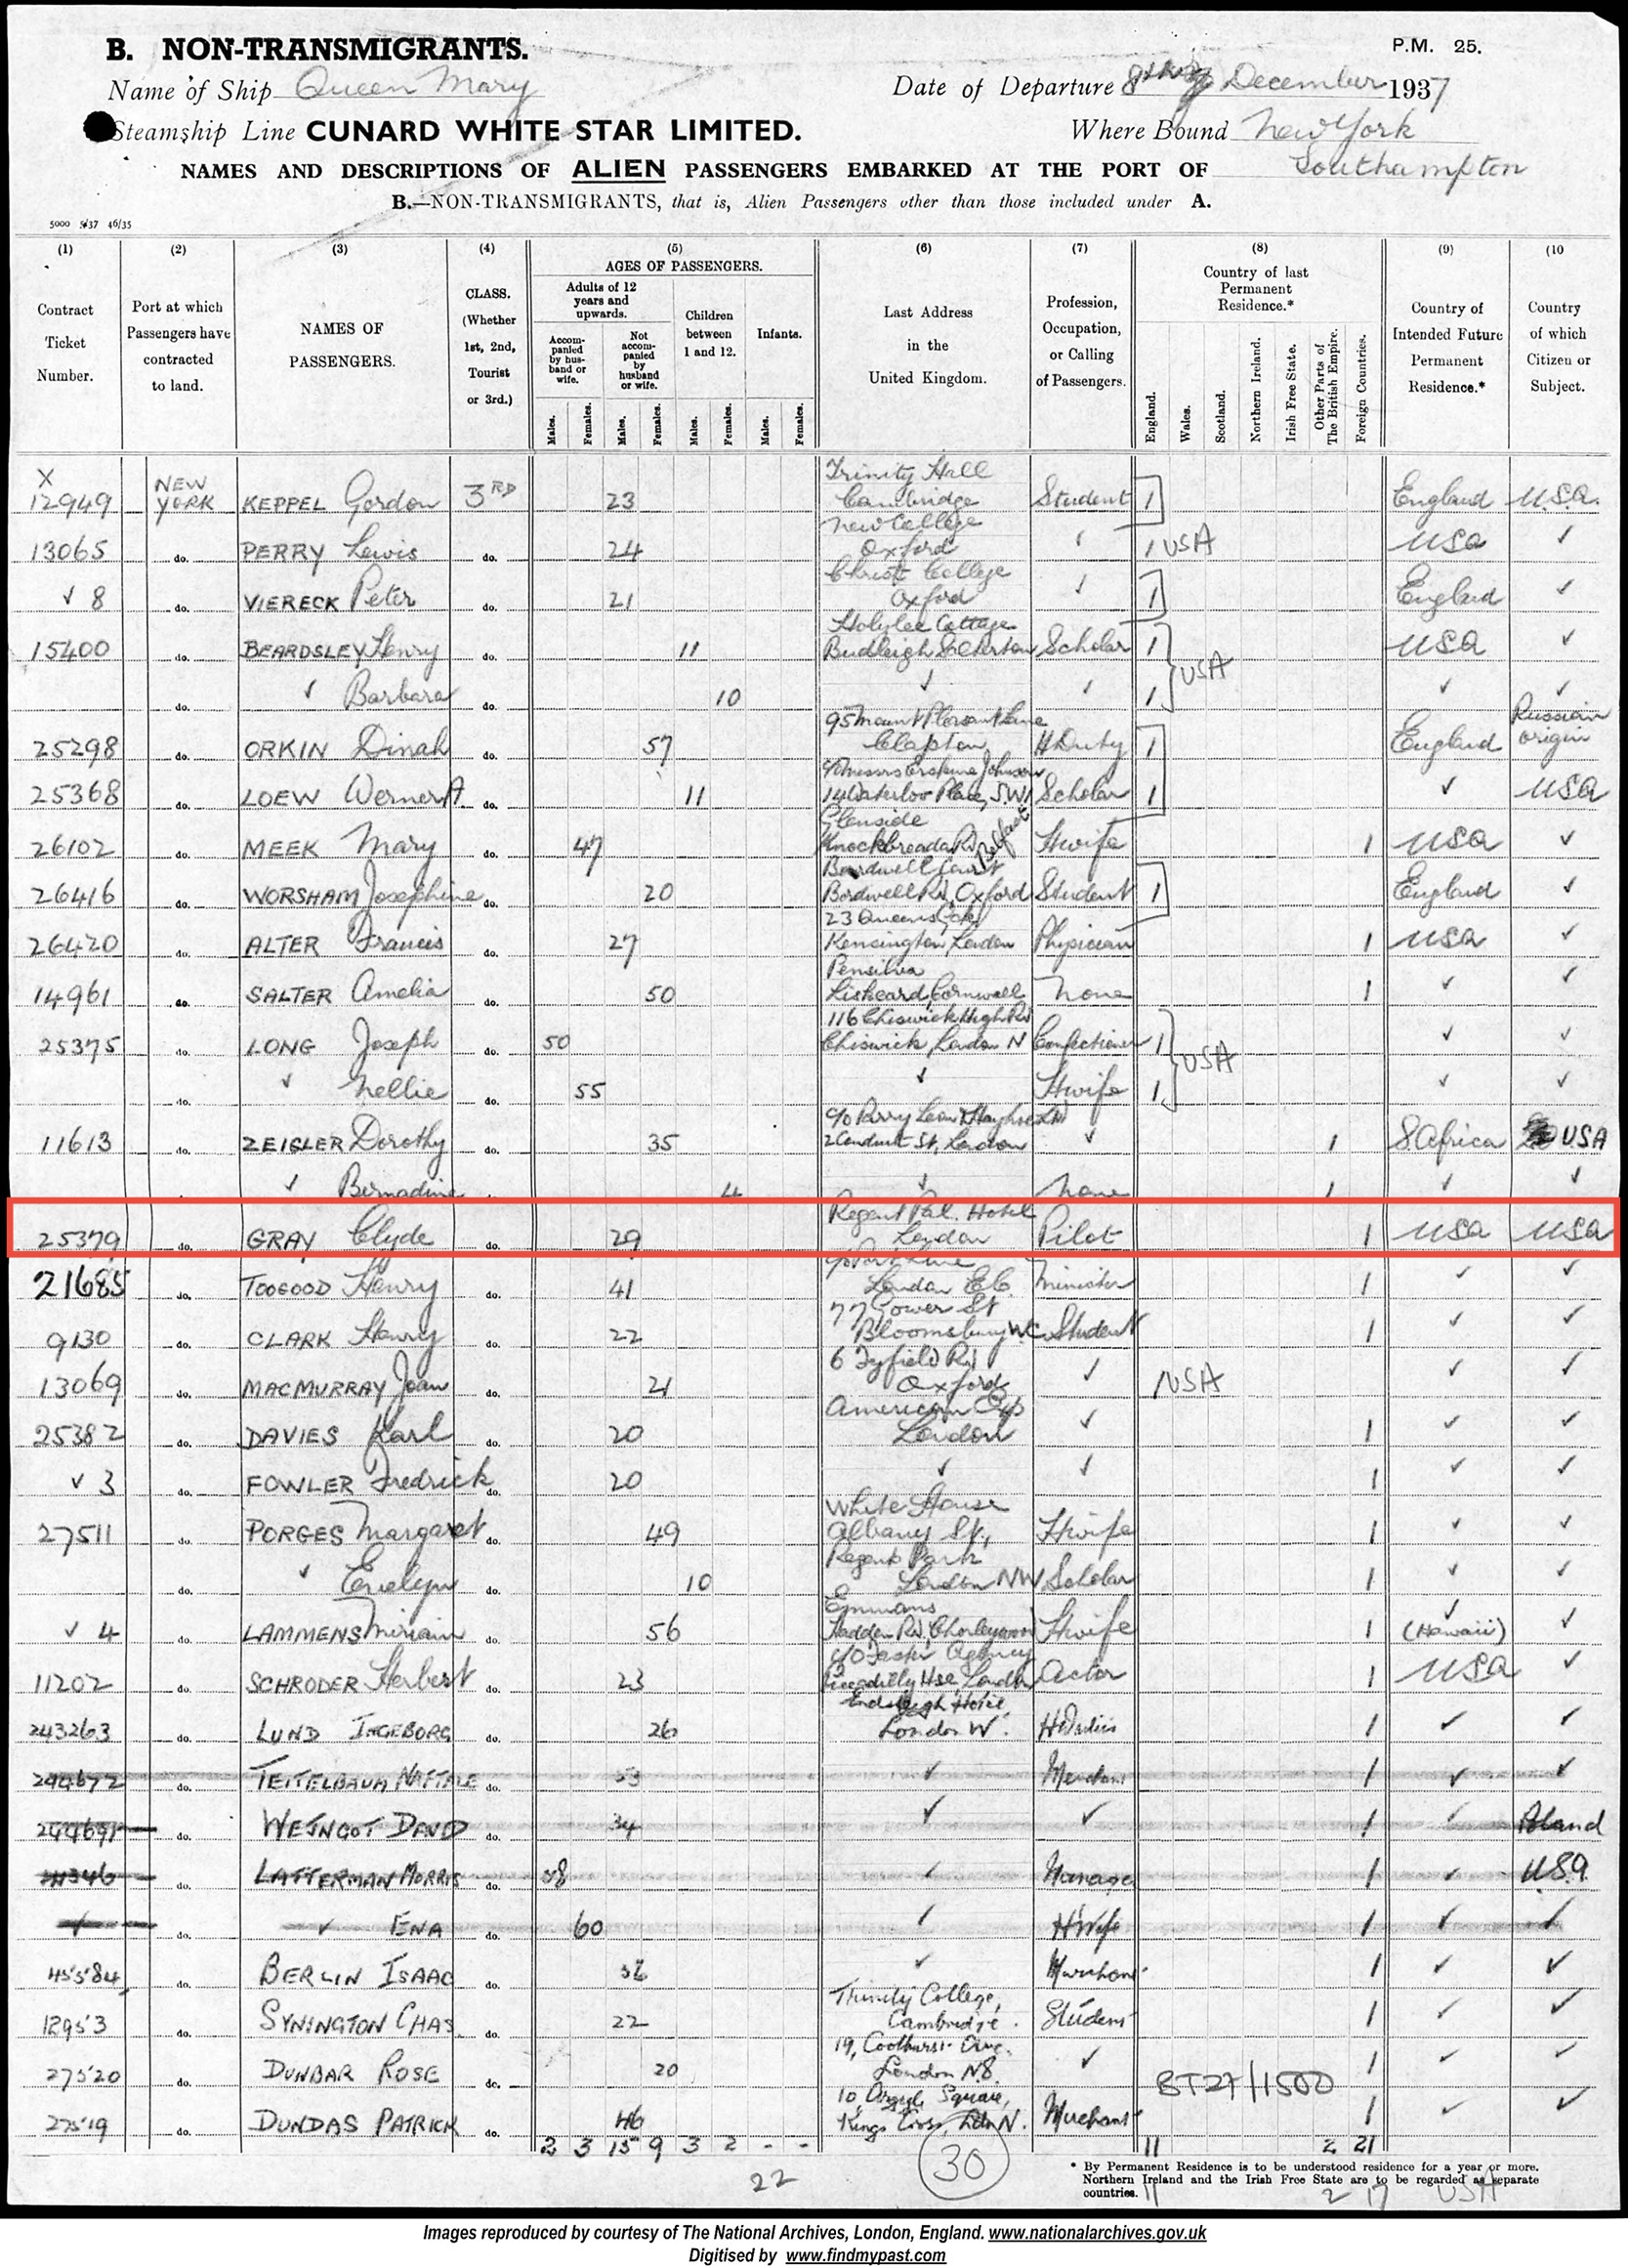 B. NON-TRANSMIGRANTS.
P.M. 25.
Name of Ship Queen Mary
Date of Departure 8th December 1937
Steamship Line CUNARD WHITE STAR LIMITED.
Where Bound New York
NAMES AND DESCRIPTIONS OF ALIEN PASSENGERS EMBARKED AT THE PORT OF Southampton
B.—NON-TRANSMIGRANTS, that is, Alien Passengers other than those included under A.
5000 5/37 46/35
(1) (2) (3) (4) (5) (6) (7) (8) (9) (10
Contract Ticket Number.
Port at which Passengers have contracted to land.
NAMES OF PASSENGERS.
CLASS. (Whether 1st, 2nd, Tourist or 3rd.)
AGES OF PASSENGERS.
Adults of 12 years and upwards.
Accom- panied by hus- band or wife.
Not accom- panied by husband or wife.
Children between 1 and 12.
Infants.
Males. Females. Males. Females. Males. Females. Males. Females.
Last Address in the United Kingdom.
Profession, Occupation, or Calling of Passengers.
Country of last Permanent Residence.*
England. Wales. Scotland. Northern Ireland. Irish Free State. Other Parts of The British Empire. Foreign Countries.
Country of Intended Future Permanent Residence.*
Country of which Citizen or Subject.
X 12949 NEW YORK KEPPEL Gordon 3RD 23 Trinity Hall Cambridge Student 1 England U.S.A.
13065 do. PERRY Lewis do. 24 New College Oxford ✓ 1 USA USA ✓
✓ 8 do. VIERECK Peter do. 21 Christ College Oxford ✓ 1 England ✓
15400 do. BEARDSLEY Henry do. 11 Budleigh Salterton Scholar 1 USA USA ✓
do. ✓ Barbara do. 10 ✓ ✓ 1 ✓ ✓
25298 do. ORKIN Dinah do. 57 95 Mount Pleasant Lane Clapton H Duty 1 England Russian origin
25368 do. LOEW Werner A. do. 11 14 Waterloo Place, S.W.1 Scholar 1 ✓ USA
26102 do. MEEK Mary do. 47 Glenside Knockbreda Rd Belfast Hwife 1 USA ✓
26416 do. WORSHAM Josephine do. 20 Bardwell Court Bardwell Rd, Oxford Student 1 England ✓
26420 do. ALTER Francis do. 27 23 Queens Gate Kensington, London Physician 1 USA ✓
14961 do. SALTER Amelia do. 50 Pensilva Liskeard, Cornwall None 1 ✓ ✓
25375 do. LONG Joseph do. 50 116 Chiswick High Rd Chiswick, London N Confectioner 1 USA ✓ ✓
do. ✓ Nellie do. 55 ✓ Hwife 1 ✓ ✓
11613 do. ZEIGLER Dorothy do. 35 2 Conduit St, London ✓ 1 S. Africa USA
✓ Bernadine 4 ✓ None 1 ✓ ✓
25379 do. GRAY Clyde do. 29 Regent Pal. Hotel London Pilot 1 USA USA
21685 do. TOOGOOD Henry do. 41 London E.C. Minister 1 ✓ ✓
9130 do. CLARK Henry do. 22 77 Gower St Bloomsbury W.C. Student 1 ✓ ✓
13069 do. MACMURRAY Joan do. 21 6 Fyfield Rd Oxford ✓ 1 USA ✓ ✓
25382 do. DAVIES Karl do. 20 American Exp London ✓ 1 ✓ ✓
✓ 3 do. FOWLER Fredrick do. 20 ✓ ✓ 1 ✓ ✓
27511 do. PORGES Margaret do. 49 White House Albany St., Hwife 1 ✓ ✓
do. ✓ Evelyn do. 10 Regents Park London NW Scholar 1 ✓ ✓
✓ 4 do. LAMMENS Miriam do. 56 Emmaus Rd, Chorleywood Hwife 1 ✓ (Hawaii) ✓
11202 do. SCHRODER Herbert do. 23 Piccadilly Hse London Actor 1 USA ✓
243263 do. LUND INGEBORG do. 26 Endsleigh Hotel London W. H Duties 1 ✓ ✓
244672 do. TEITELBAUM NAFTALE do. 53 ✓ 1 ✓ ✓
244691 do. WEJNGOT DAVID do. 34 ✓ ✓ 1 ✓ Poland
do. LATTERMAN MORRIS do. 58 ✓ Manager 1 ✓ U.S.A.
✓ do. ✓ ENA do. 60 ✓ H'Wife 1 ✓ ✓
45584 do. BERLIN ISAAC do. ✓ Merchant 1 ✓ ✓
12953 do. SYNINGTON CHAS. do. 22 Trinity College, Cambridge. Student 1 ✓ ✓
27520 do. DUNBAR ROSE do. 20 19, Coolhurst London N8. ✓ 1 ✓ ✓
27519 do. DUNDAS PATRICK do. 46 10, Argyle Square, Kings Cross, Ldn N. Merchant 1 ✓ ✓
BT27/1500
2 3 15 9 3 2 - - 11 2 21
22
30
11 2 17 USA
* By Permanent Residence is to be understood residence for a year or more.
Northern Ireland and the Irish Free State are to be regarded as separate
countries.
Images reproduced by courtesy of The National Archives, London, England. www.nationalarchives.gov.uk
Digitised by www.findmypast.com